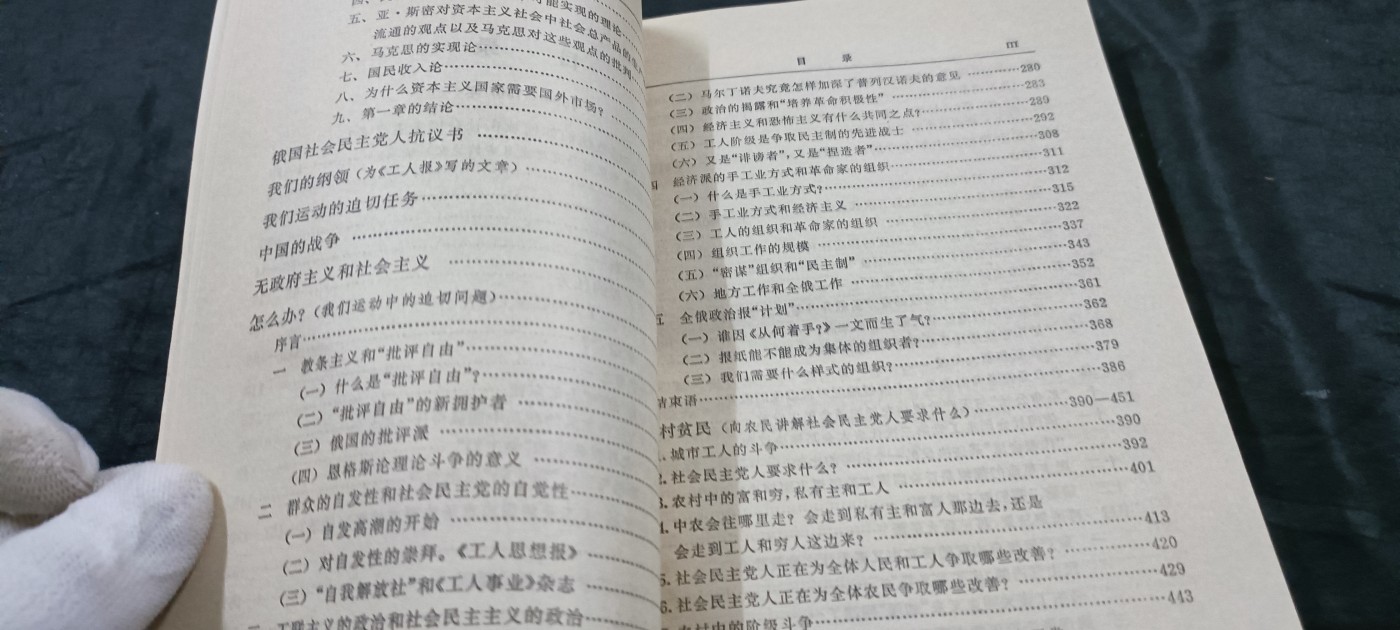 能实现的理论……
五、亚·斯密对资本主义社会中社会总产品的
流通的观点以及马克思对这些观点的批判
六、马克思的实现论
七、国民收入论
八、为什么资本主义国家需要国外市场？
九、第一章的结论
俄国社会民主党人抗议书
我们的纲领（为《工人报》写的文章）
我们运动的迫切任务
中国的战争
无政府主义和社会主义
怎么办？（我们运动中的迫切问题）
序言
一 教条主义和“批评自由”
（一）什么是“批评自由”？
（二）“批评自由”的新拥护者
（三）俄国的批评派
（四）恩格斯论理论斗争的意义
二 群众的自发性和社会民主党的自觉性
（一）自发高潮的开始
（二）对自发性的崇拜。《工人思想报》
（三）“自我解放社”和《工人事业》杂志
工联主义的政治和社会民主主义的政治
目 录 III
（二）马尔丁诺夫究竟怎样加深了普列汉诺夫的意见 280
（三）政治的揭露和“培养革命积极性” 283
（四）经济主义和恐怖主义有什么共同之点？ 289
（五）工人阶级是争取民主制的先进战士 292
（六）又是“诽谤者”，又是“捏造者” 308
经济派的手工业方式和革命家的组织 311
（一）什么是手工业方式？ 312
（二）手工业方式和经济主义 315
（三）工人的组织和革命家的组织 322
（四）组织工作的规模 337
（五）“密谋”组织和“民主制” 343
（六）地方工作和全俄工作 352
五 全俄政治报“计划” 361
（一）谁因《从何着手？》一文而生了气？ 362
（二）报纸能不能成为集体的组织者？ 368
（三）我们需要什么样式的组织？ 379
结束语 386
村贫民（向农民讲解社会民主党人要求什么） 390—451
1.城市工人的斗争 390
2.社会民主党人要求什么？ 392
3.农村中的富和穷，私有主和工人 401
4.中农会往哪里走？会走到私有主和富人那边去，还是
会走到工人和穷人这边来？ 413
5.社会民主党人正在为全体人民和工人争取哪些改善？ 420
6.社会民主党人正在为全体农民争取哪些改善？ 429
农村中的阶级斗争 443